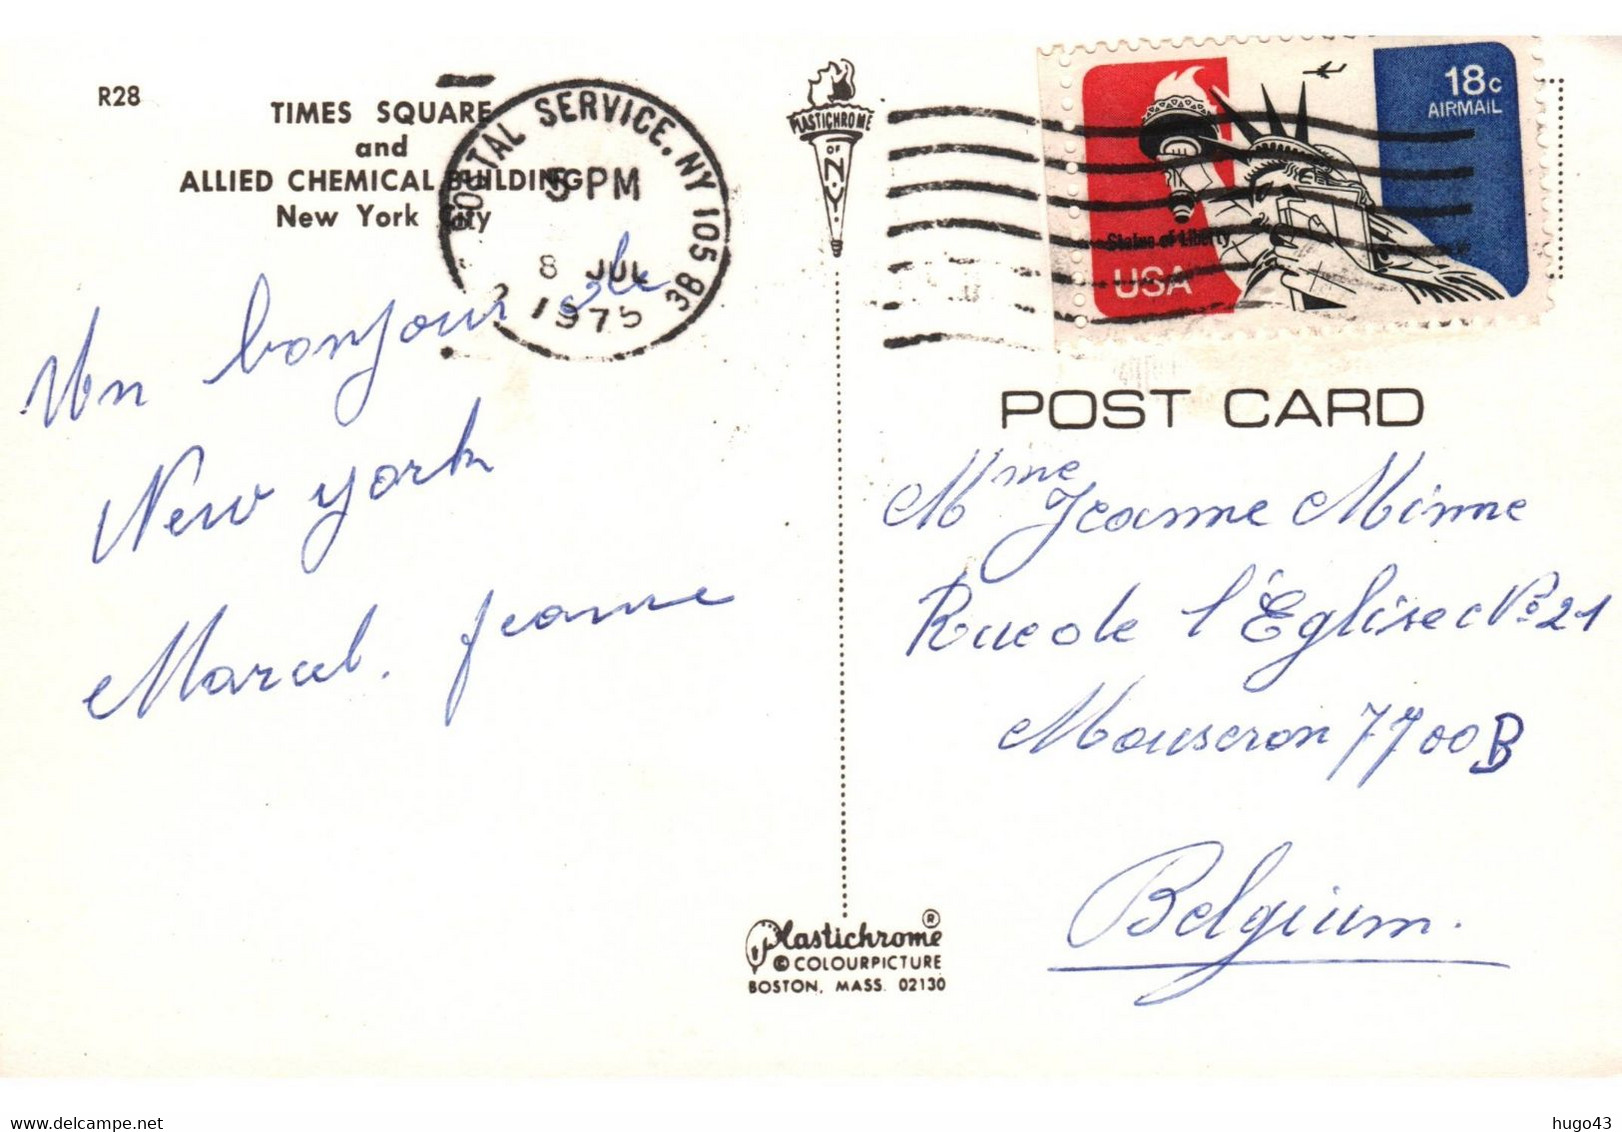 R28
TIMES SQUARE
and
ALLIED CHEMICAL BUILDING
New York City
POSTAL SERVICE, NY 105
5 PM
8 JUL
1975
Un bonjour de
New york
Marcel. Jeanne
PLASTICHROME
OF
N.Y.
18c
AIRMAIL
Statue of Liberty
USA
POST CARD
Mme Jeanne Minne
Rue de l'Église No 21
Mouscron 7700 B
Belgium.
Plastichrome®
© COLOURPICTURE
BOSTON, MASS. 02130
hugo43